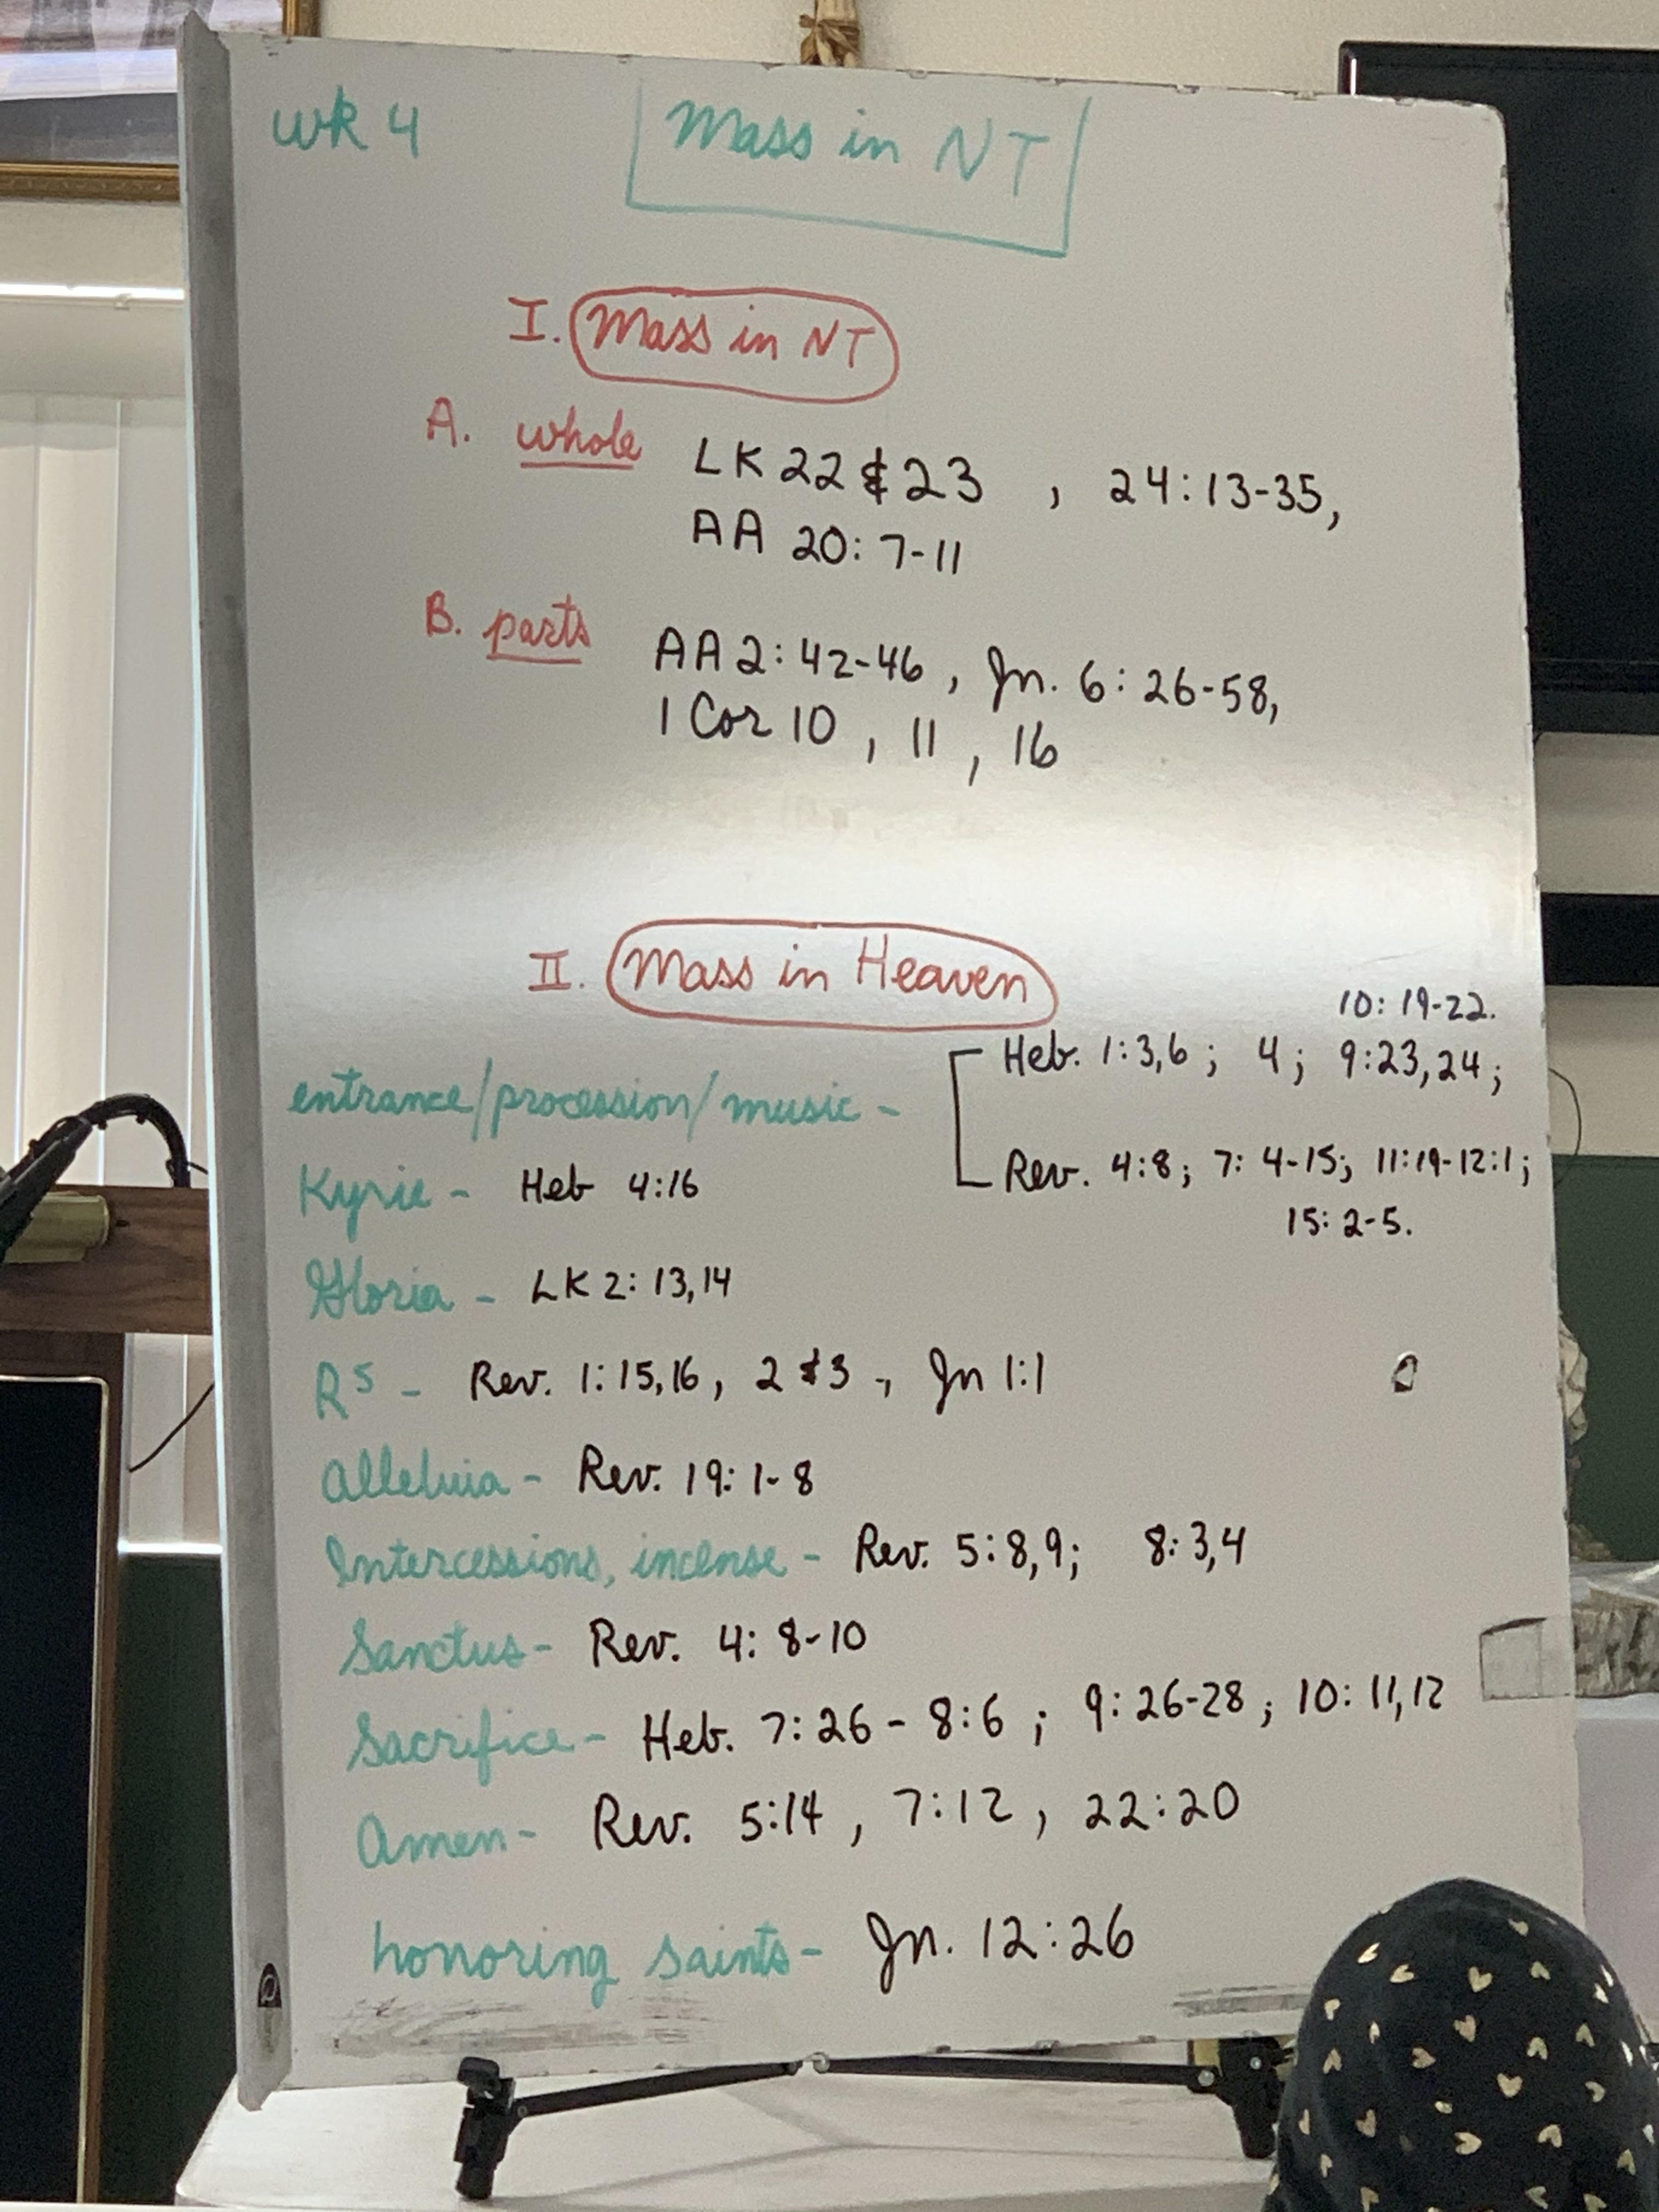 wk 4
Mass in NT
I. Mass in NT
A. whole LK 22 & 23 , 24:13-35,
AA 20:7-11
B. parts AA 2:42-46, Jn. 6:26-58,
1 Cor 10, 11, 16
II. Mass in Heaven
10:19-22.
entrance/procession/music - Heb. 1:3,6; 4; 9:23,24;
Rev. 4:8; 7:4-15; 11:19-12:1;
15:2-5.
Kyrie - Heb 4:16
Gloria - LK 2:13,14
R5 - Rev. 1:15,16, 2 & 3, Jn 1:1
Alleluia - Rev. 19:1-8
Intercessions, incense - Rev. 5:8,9; 8:3,4
Sanctus - Rev. 4:8-10
Sacrifice - Heb. 7:26-8:6; 9:26-28; 10:11,12
Amen - Rev. 5:14, 7:12, 22:20
honoring saints - Jn. 12:26